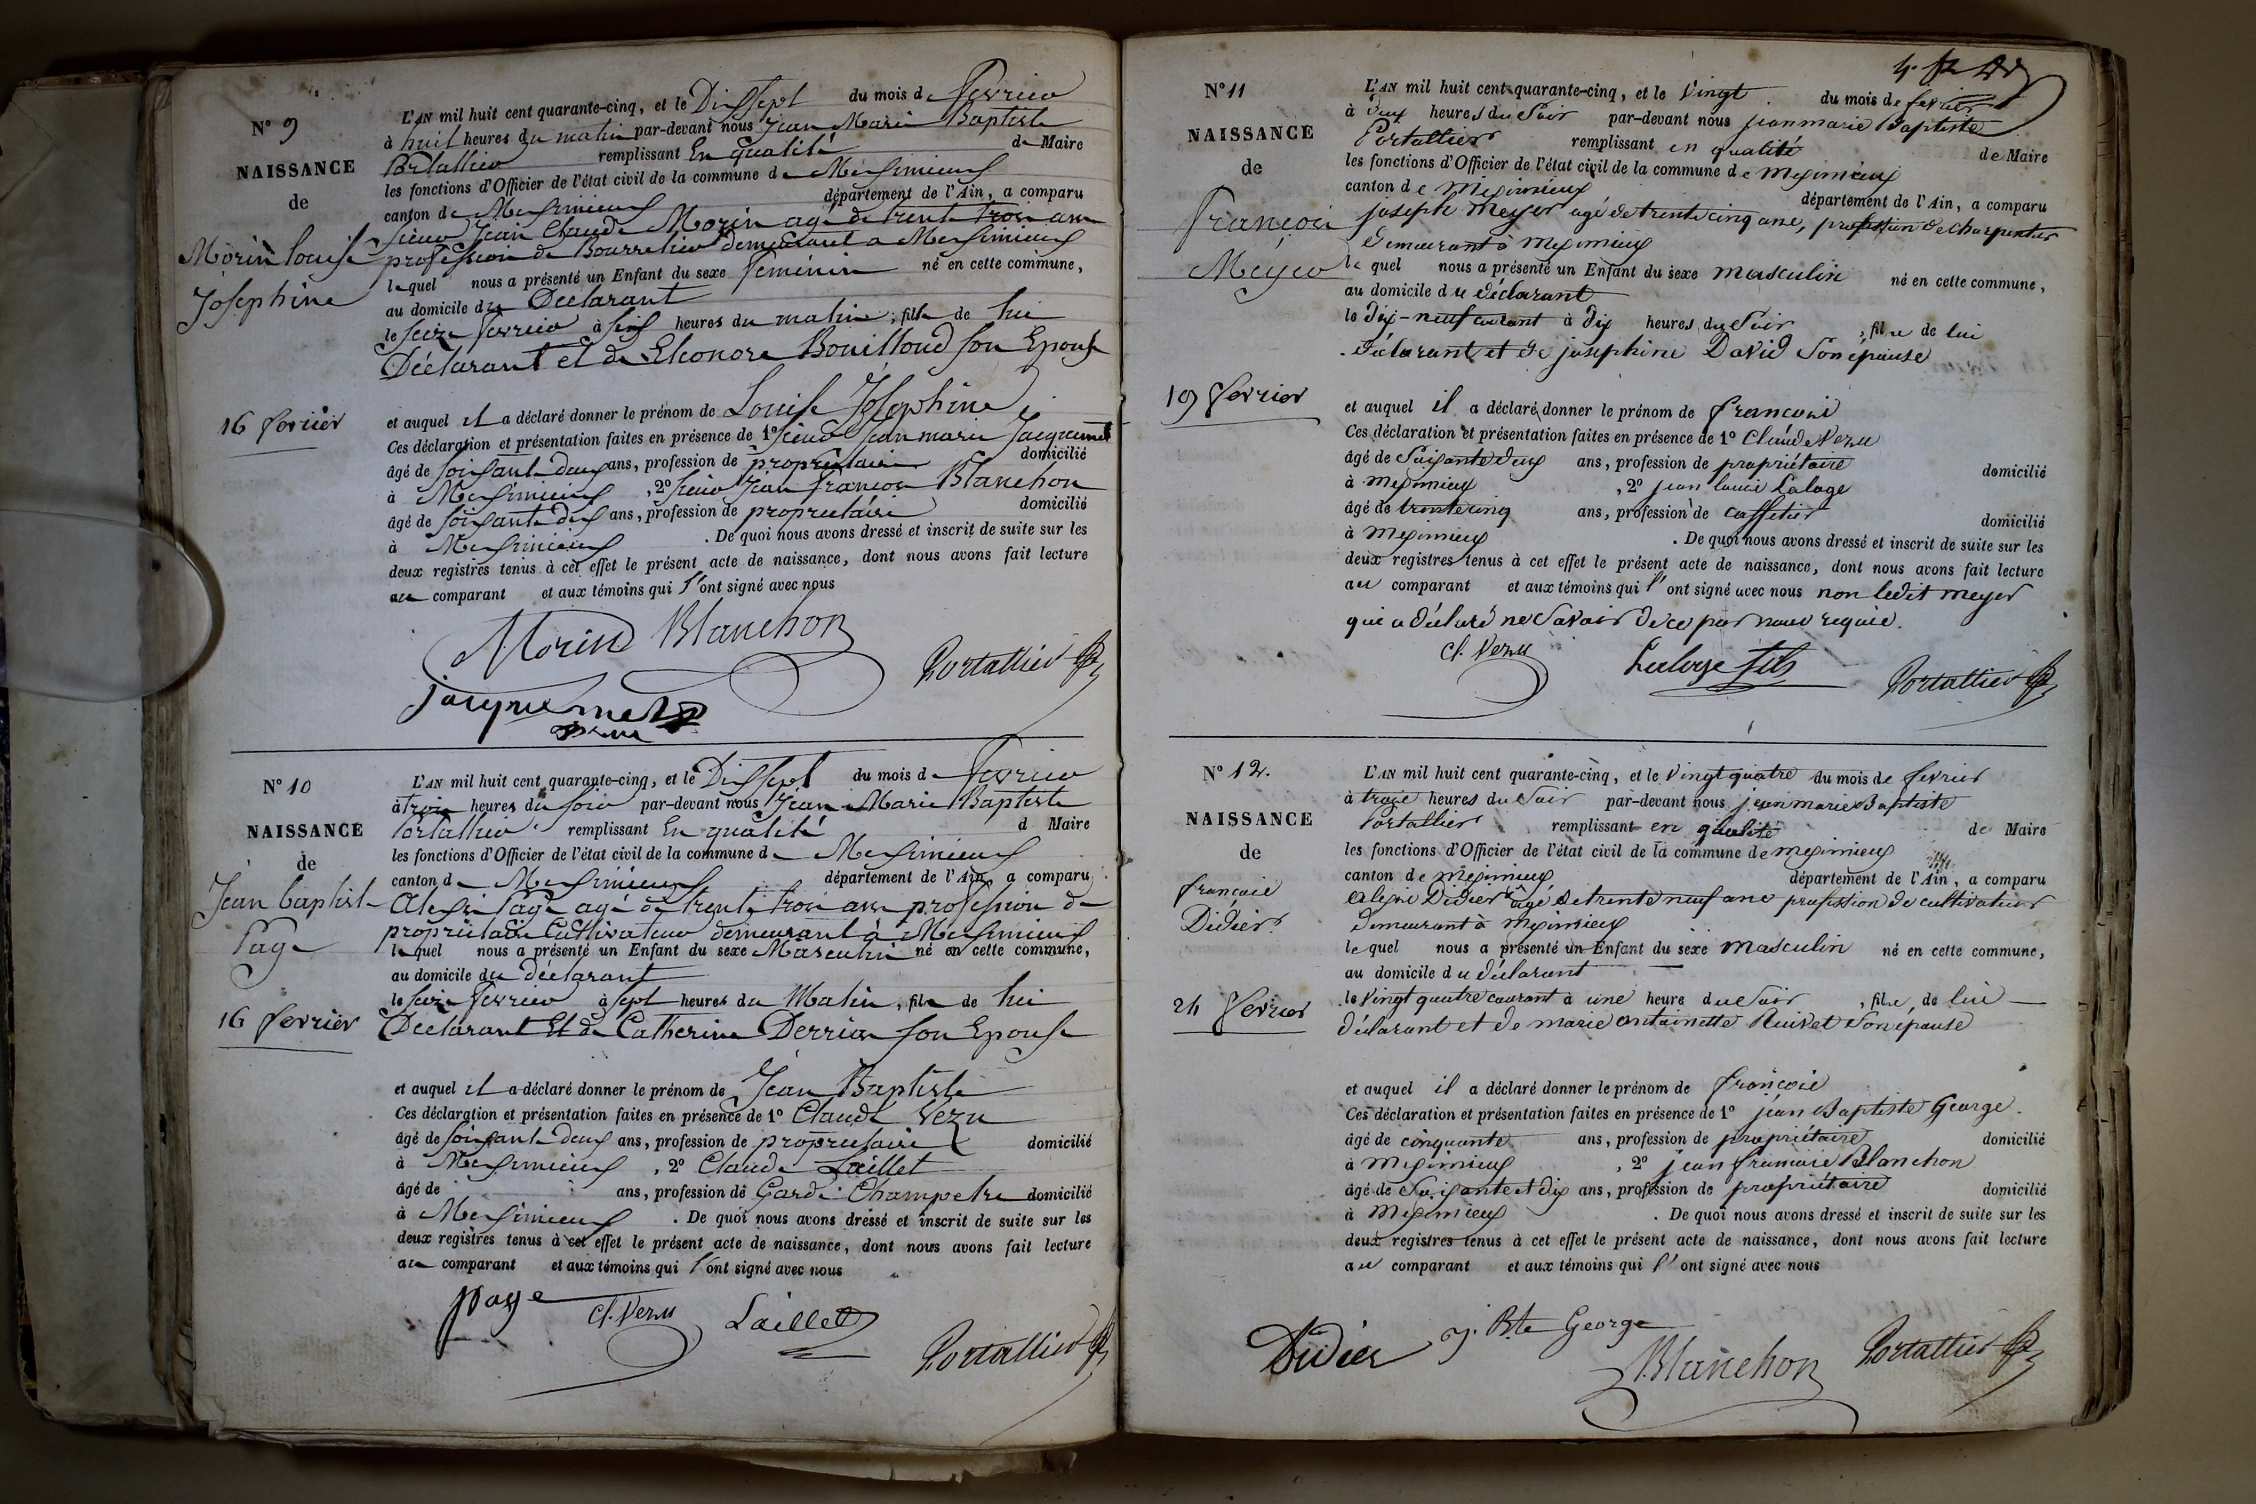 N° 9
NAISSANCE
de
Morin Louise
Josephine
16 fevrier
L'AN mil huit cent quarante-cinq, et le Dix sept du mois de Fevrier
à huit heures du matin par-devant nous Jean Marie Baptiste
Portallier remplissant En qualité de Maire
les fonctions d'Officier de l'état civil de la commune de Meximieux
canton de Meximieux département de l'Ain, a comparu
sieur Jean Claude Morin agé de trente trois ans
profession de Bourrelier demeurant a Meximieux
lequel nous a présenté un Enfant du sexe Feminin né en cette commune,
au domicile du Declarant
le seize fevrier à six heures du matin, fille de lui
Déclarant et de Eleonore Bouilloud son Epouse
et auquel il a déclaré donner le prénom de Louise Josephine
Ces déclaration et présentation faites en présence de 1° sieur Jean marie Jacquemet
âgé de soixante deux ans, profession de propriétaire domicilié
à Meximieux, 2° sieur Jean françois Blanchon
âgé de soixante dix ans, profession de propriétaire domicilié
à Meximieux. De quoi nous avons dressé et inscrit de suite sur les
deux registres tenus à cet effet le présent acte de naissance, dont nous avons fait lecture
au comparant et aux témoins qui l'ont signé avec nous
Morin Blanchon
Portallier
jacquemet
N° 10
NAISSANCE
de
Jean baptiste
Page
16 fevrier
L'AN mil huit cent quarante-cinq, et le Dix sept du mois de Fevrier
à trois heures du soir par-devant nous Jean Marie Baptiste
Portallier remplissant En qualité d Maire
les fonctions d'Officier de l'état civil de la commune de Meximieux
canton de Meximieux département de l'Ain, a comparu
Alexis Page agé de trente trois ans profession de
propriétaire Cultivateur demeurant à Meximieux
lequel nous a présenté un Enfant du sexe Masculin né en cette commune,
au domicile du déclarant
le seize Fevrier à sept heures du Matin, fils de lui
Declarant Et de Catherine Derrias son Epouse
et auquel il a déclaré donner le prénom de Jean Baptiste
Ces déclaration et présentation faites en présence de 1° Claude Vezu
âgé de soixante deux ans, profession de propriétaire domicilié
à Meximieux, 2° Claude Laillet
âgé de ans, profession de Garde Champetre domicilié
à Meximieux. De quoi nous avons dressé et inscrit de suite sur les
deux registres tenus à cet effet le présent acte de naissance, dont nous avons fait lecture
au comparant et aux témoins qui l'ont signé avec nous
page
Cl. Vezu Laillet
Portallier
N° 11
NAISSANCE
de
François
Meyer
19 fevrier
L'AN mil huit cent quarante-cinq, et le Vingt du mois de fevrier
à deux heures du Soir par-devant nous jean marie Baptiste
Portallier remplissant en qualité de Maire
les fonctions d'Officier de l'état civil de la commune de meximieux
canton de meximieux département de l'Ain, a comparu
joseph meyer agé de trente cinq ans, profession de charpentier
demeurant à meximieux
lequel nous a présenté un Enfant du sexe masculin né en cette commune,
au domicile du déclarant
le dix-neuf courant à dix heures du Soir, fils de lui
déclarant et de josephine David Son épouse
et auquel il a déclaré donner le prénom de françois
Ces déclaration et présentation faites en présence de 1° Claude Vezu
âgé de Soixante deux ans, profession de propriétaire domicilié
à meximieux, 2° jean louis Laloge
âgé de trente cinq ans, profession de caffetier domicilié
à meximieux. De quoi nous avons dressé et inscrit de suite sur les
deux registres tenus à cet effet le présent acte de naissance, dont nous avons fait lecture
au comparant et aux témoins qui l'ont signé avec nous non ledit meyer
qui a déclaré ne Savoir de ce par nous requis.
Cl. Vezu Laloge fils Portallier
N° 12.
NAISSANCE
de
françois
Didier
24 fevrier
L'AN mil huit cent quarante-cinq, et le Vingt quatre du mois de fevrier
à trois heures du Soir par-devant nous jean marie Baptiste
Portallier remplissant en qualité de Maire
les fonctions d'Officier de l'état civil de la commune de meximieux
canton de meximieux département de l'Ain, a comparu
alexis Didier agé de trente neuf ans profession de cultivateur
demeurant à meximieux
lequel nous a présenté un Enfant du sexe masculin né en cette commune,
au domicile du déclarant
le Vingt quatre courant à une heure du Soir, fils de lui
déclarant et de marie antoinette Ruivet Son épouse
et auquel il a déclaré donner le prénom de françois
Ces déclaration et présentation faites en présence de 1° jean Baptiste George.
âgé de cinquante ans, profession de propriétaire domicilié
à meximieux, 2° jean francois Blanchon
âgé de Soixante et dix ans, profession de propriétaire domicilié
à meximieux. De quoi nous avons dressé et inscrit de suite sur les
deux registres tenus à cet effet le présent acte de naissance, dont nous avons fait lecture
au comparant et aux témoins qui l'ont signé avec nous
Didier J. Bte George
Blanchon Portallier